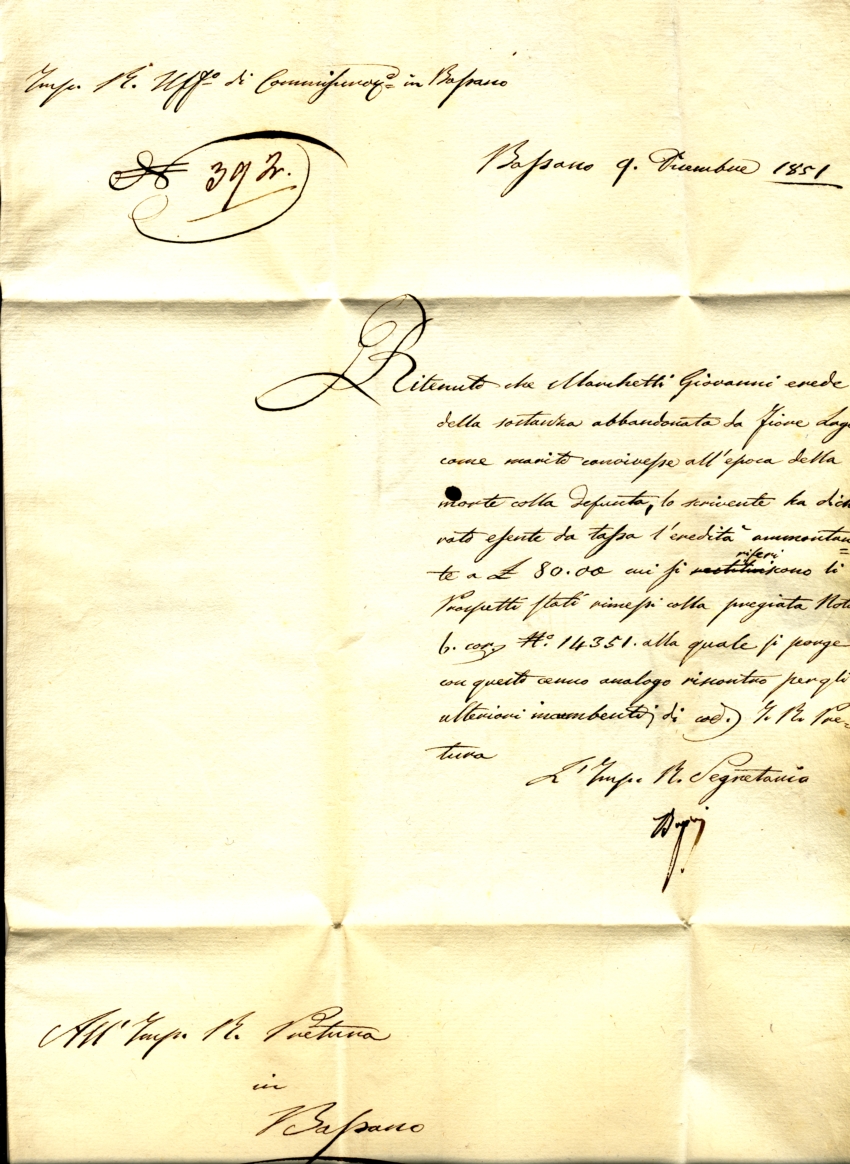 Imp. R. Uff.o di Commisuraz.e in Bassano
N 392.
Bassano 9. Dicembre 1851
Ritenuto che Marchetti Giovanni erede
della sostanza abbandonata da Fiore Lug
come marito convivesse all'epoca della
morte colla defunta, lo scrivente ha dich
rato esente da tassa l'eredità ammontan=
riferi
te a £ 80.00 cui si restituiscono li
Prospetti stati rimessi colla pregiata Nota
6. cor. N.o 14351. alla quale si porge
con questo cenno analogo riscontro per gli
ulteriori incombenti di cod. I. R. Pre=
tura
L'Imp. R. Segretario
All' Imp. R. Pretura
in
Bassano